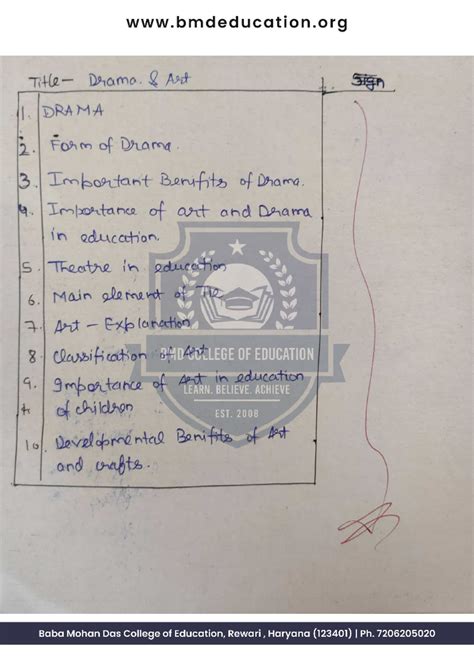 www.bmdeducation.org
Title - Drama & Art
Sign
1. DRAMA
2. Form of Drama.
3. Important Benifits of Drama.
4. Importance of art and Drama
in education.
5. Theatre in education
6. Main element of The
7. Art - Explanation
8. Classification of Art
BMD COLLEGE OF EDUCATION
9. Importance of Art in education
of children
LEARN. BELIEVE. ACHIEVE
EST. 2008
10. Developmental Benifits of Art
and crafts.
Baba Mohan Das College of Education, Rewari , Haryana (123401) | Ph. 7206205020